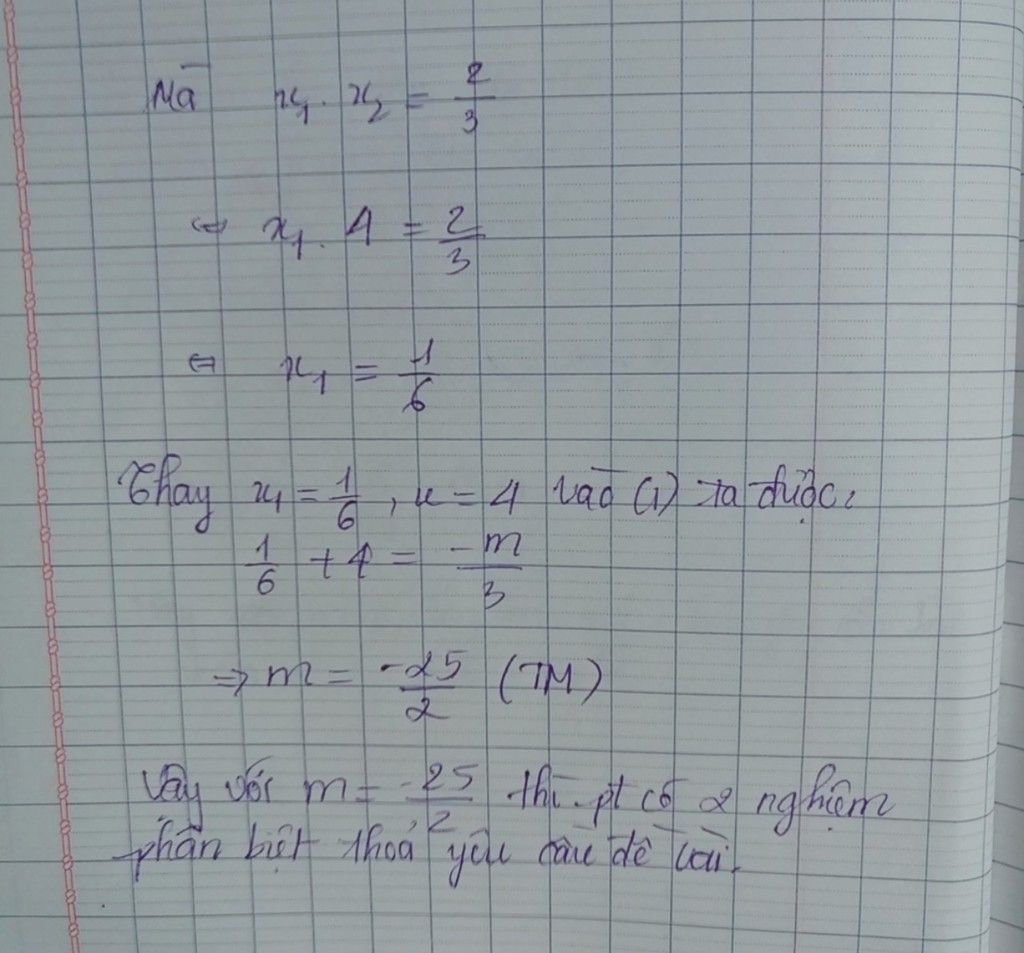 Mà x₁ . x₂ = 2/3
⇔ x₁ . 4 = 2/3
⇔ x₁ = 1/6
Thay x₁ = 1/6 , x = 4 vào (1) ta được:
1/6 + 4 = -m/3
⇒ m = -25/2 (TM)
Vậy với m = -25/2 thì pt có 2 nghiệm
phân biệt thoả yêu cầu đề bài.